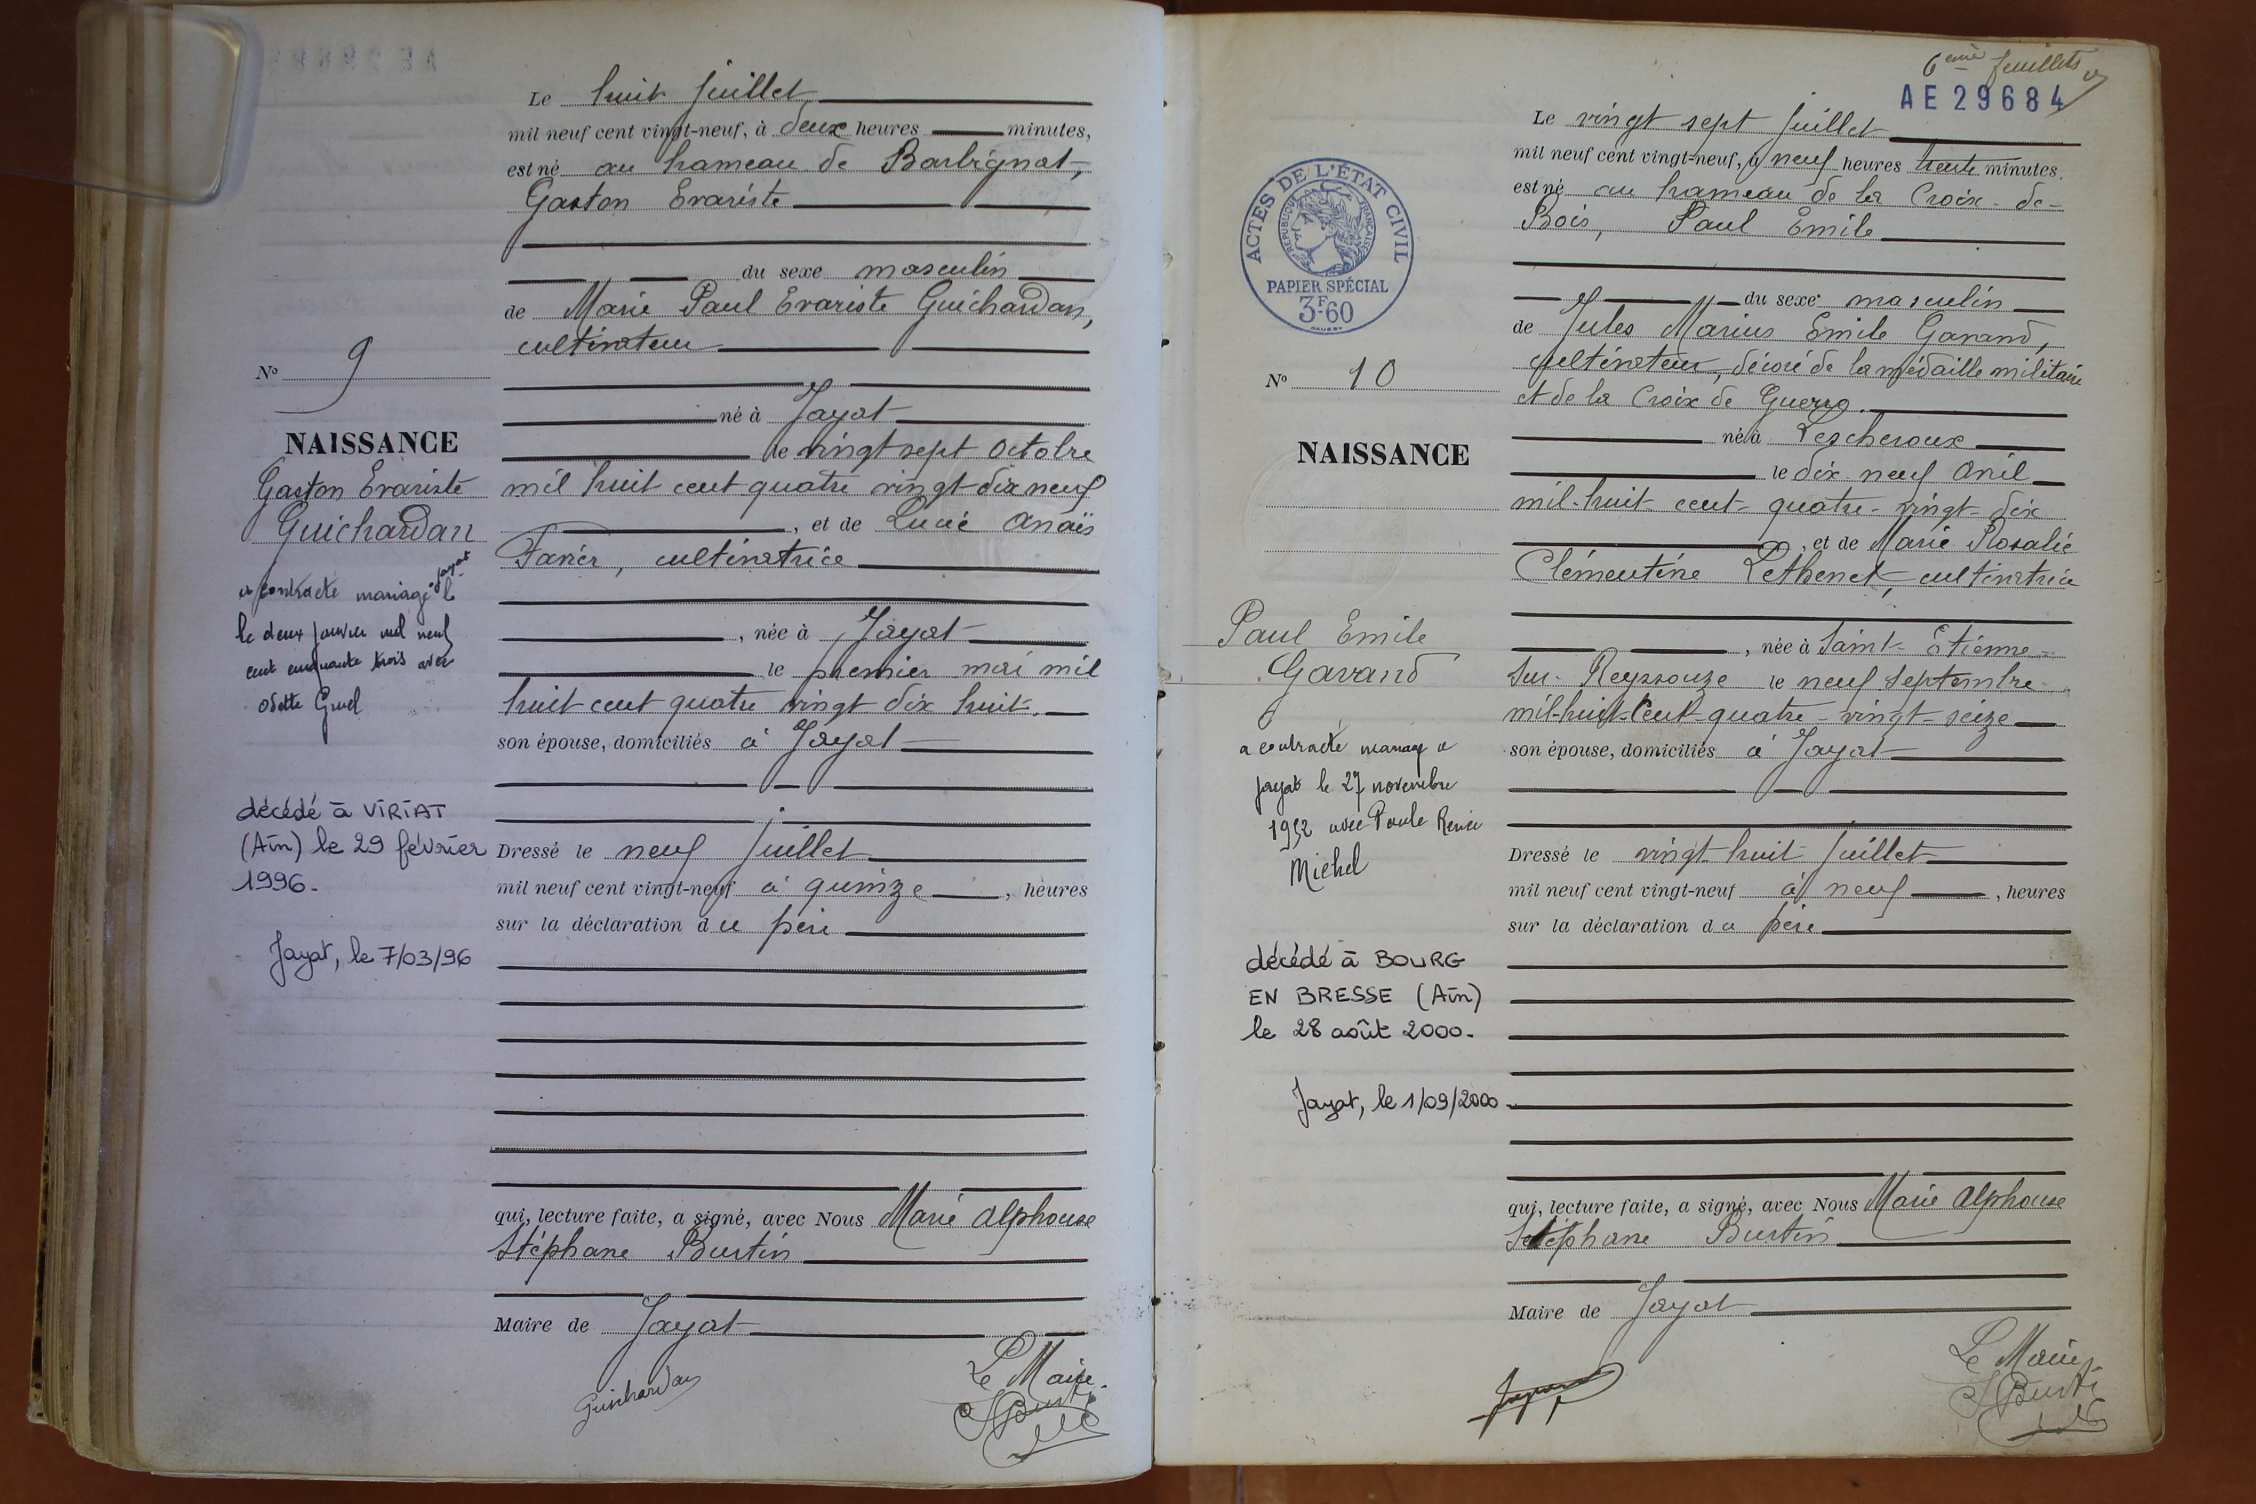 Le huit Juillet
mil neuf cent vingt-neuf, à deux heures minutes,
est né au hameau de Barbignat,
Gaston Evariste
du sexe masculin
de Marie Paul Evariste Guichardan,
cultivateur
né à Jayat
le vingt sept Octobre
mil huit cent quatre vingt dix neuf
, et de Lucie Anaïs
cultivatrice
, née à Jayat
le premier mai mil
huit cent quatre vingt dix huit.
son épouse, domiciliés à Jayat
Dressé le neuf Juillet
mil neuf cent vingt-neuf à quinze , heures
sur la déclaration du père
qui, lecture faite, a signé, avec Nous Marie Alphonse
Stéphane Burtin
Maire de Jayat
Guichardan
Le Maire
Burtin
No 9
NAISSANCE
Gaston Evariste
Guichardan
a contracté mariage à Jayat
le deux janvier mil neuf
cent cinquante trois avec
Odette
décédé à VIRIAT
(Ain) le 29 février
1996.
Jayat, le 7/03/96
6ème feuillets
AE 29684
Le vingt sept Juillet
mil neuf cent vingt-neuf, à neuf heures trente minutes.
est né au hameau de la Croix-de-
Bois, Paul Emile
du sexe masculin
de Jules Marius Emile Gavand,
cultivateur, décoré de la médaille militaire
et de la Croix de Guerre.
né à Lescheroux
le dix neuf Avril
mil-huit-cent-quatre-vingt-dix
, et de Marie Rosalie
Clémentine Pethenet, cultivatrice
, née à Saint-Etienne-
sur-Reyssouze le neuf Septembre
mil-huit-Cent-quatre-vingt-seize
son épouse, domiciliés à Jayat
Dressé le vingt huit Juillet
mil neuf cent vingt-neuf à neuf , heures
sur la déclaration du père
qui, lecture faite, a signé, avec Nous Marie Alphonse
Stéphane Burtin
Maire de Jayat
Le Maire
Burtin
ACTES DE L'ÉTAT CIVIL
RÉPUBLIQUE FRANÇAISE
PAPIER SPÉCIAL
3F60
No 10
NAISSANCE
Paul Emile
Gavand
a contracté mariage à
Jayat le 27 novembre
1952 avec Paule Renée
Michel
décédé à BOURG
EN BRESSE (Ain)
le 28 août 2000.
Jayat, le 1/09/2000